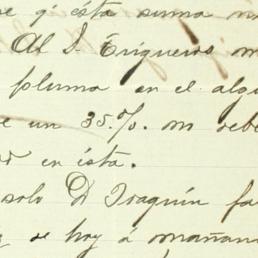 se q' ésta suma no
Al S. Trigueros m
pluma en el algo
e un 35.%. m rebe
en ésta.
solo D Joaquín fa
se hoy á mañan